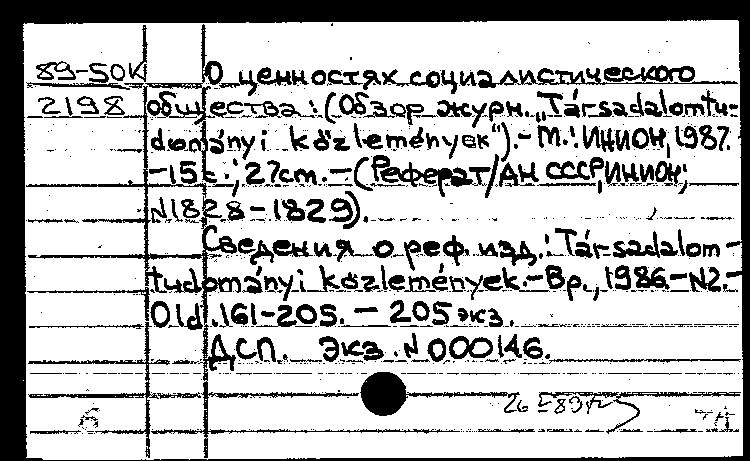 89-50К О ценностях социалистического
2198 общества: (Обзор журн. „Társadalomtu-
dományi közlemények").-М.: ИНИОН, 1987.
-15с.; 27cm.-(Реферат/АН СССР, ИНИОН;
N1828-1829).
Сведения о реф. изд.: Társadalom-
tudományi közlemények.-Bp., 1986.-N2.-
Old.161-205. - 205 экз.
ДСП. Экз. N000146.
6